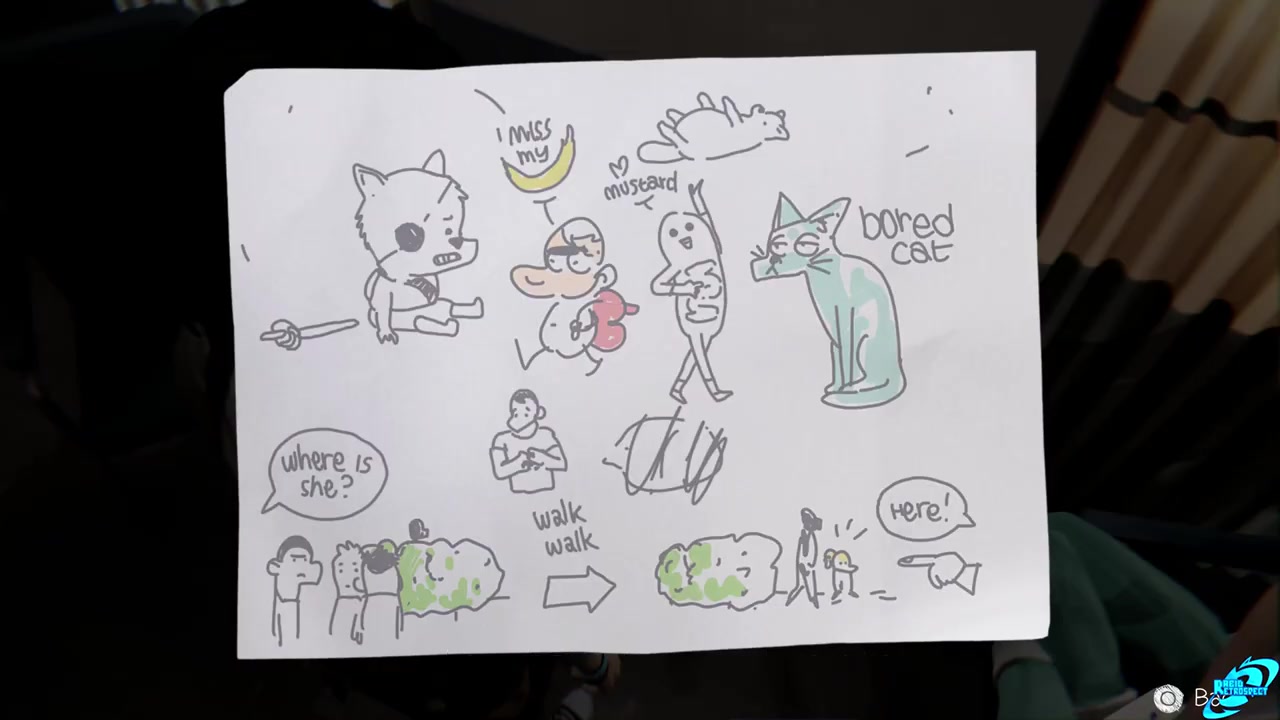 I MISS
my
mustard
bored
cat
where is
she?
walk
walk
Here!
Ba
RAGID
RETROSPECT